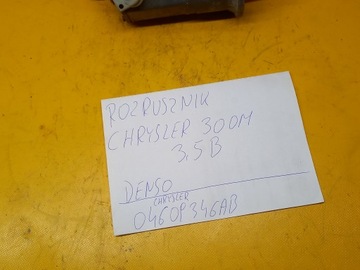 ROZRUSZNIK
CHRYSLER 300M
3.5B
DENSO
CHRYSLER
04609346AB